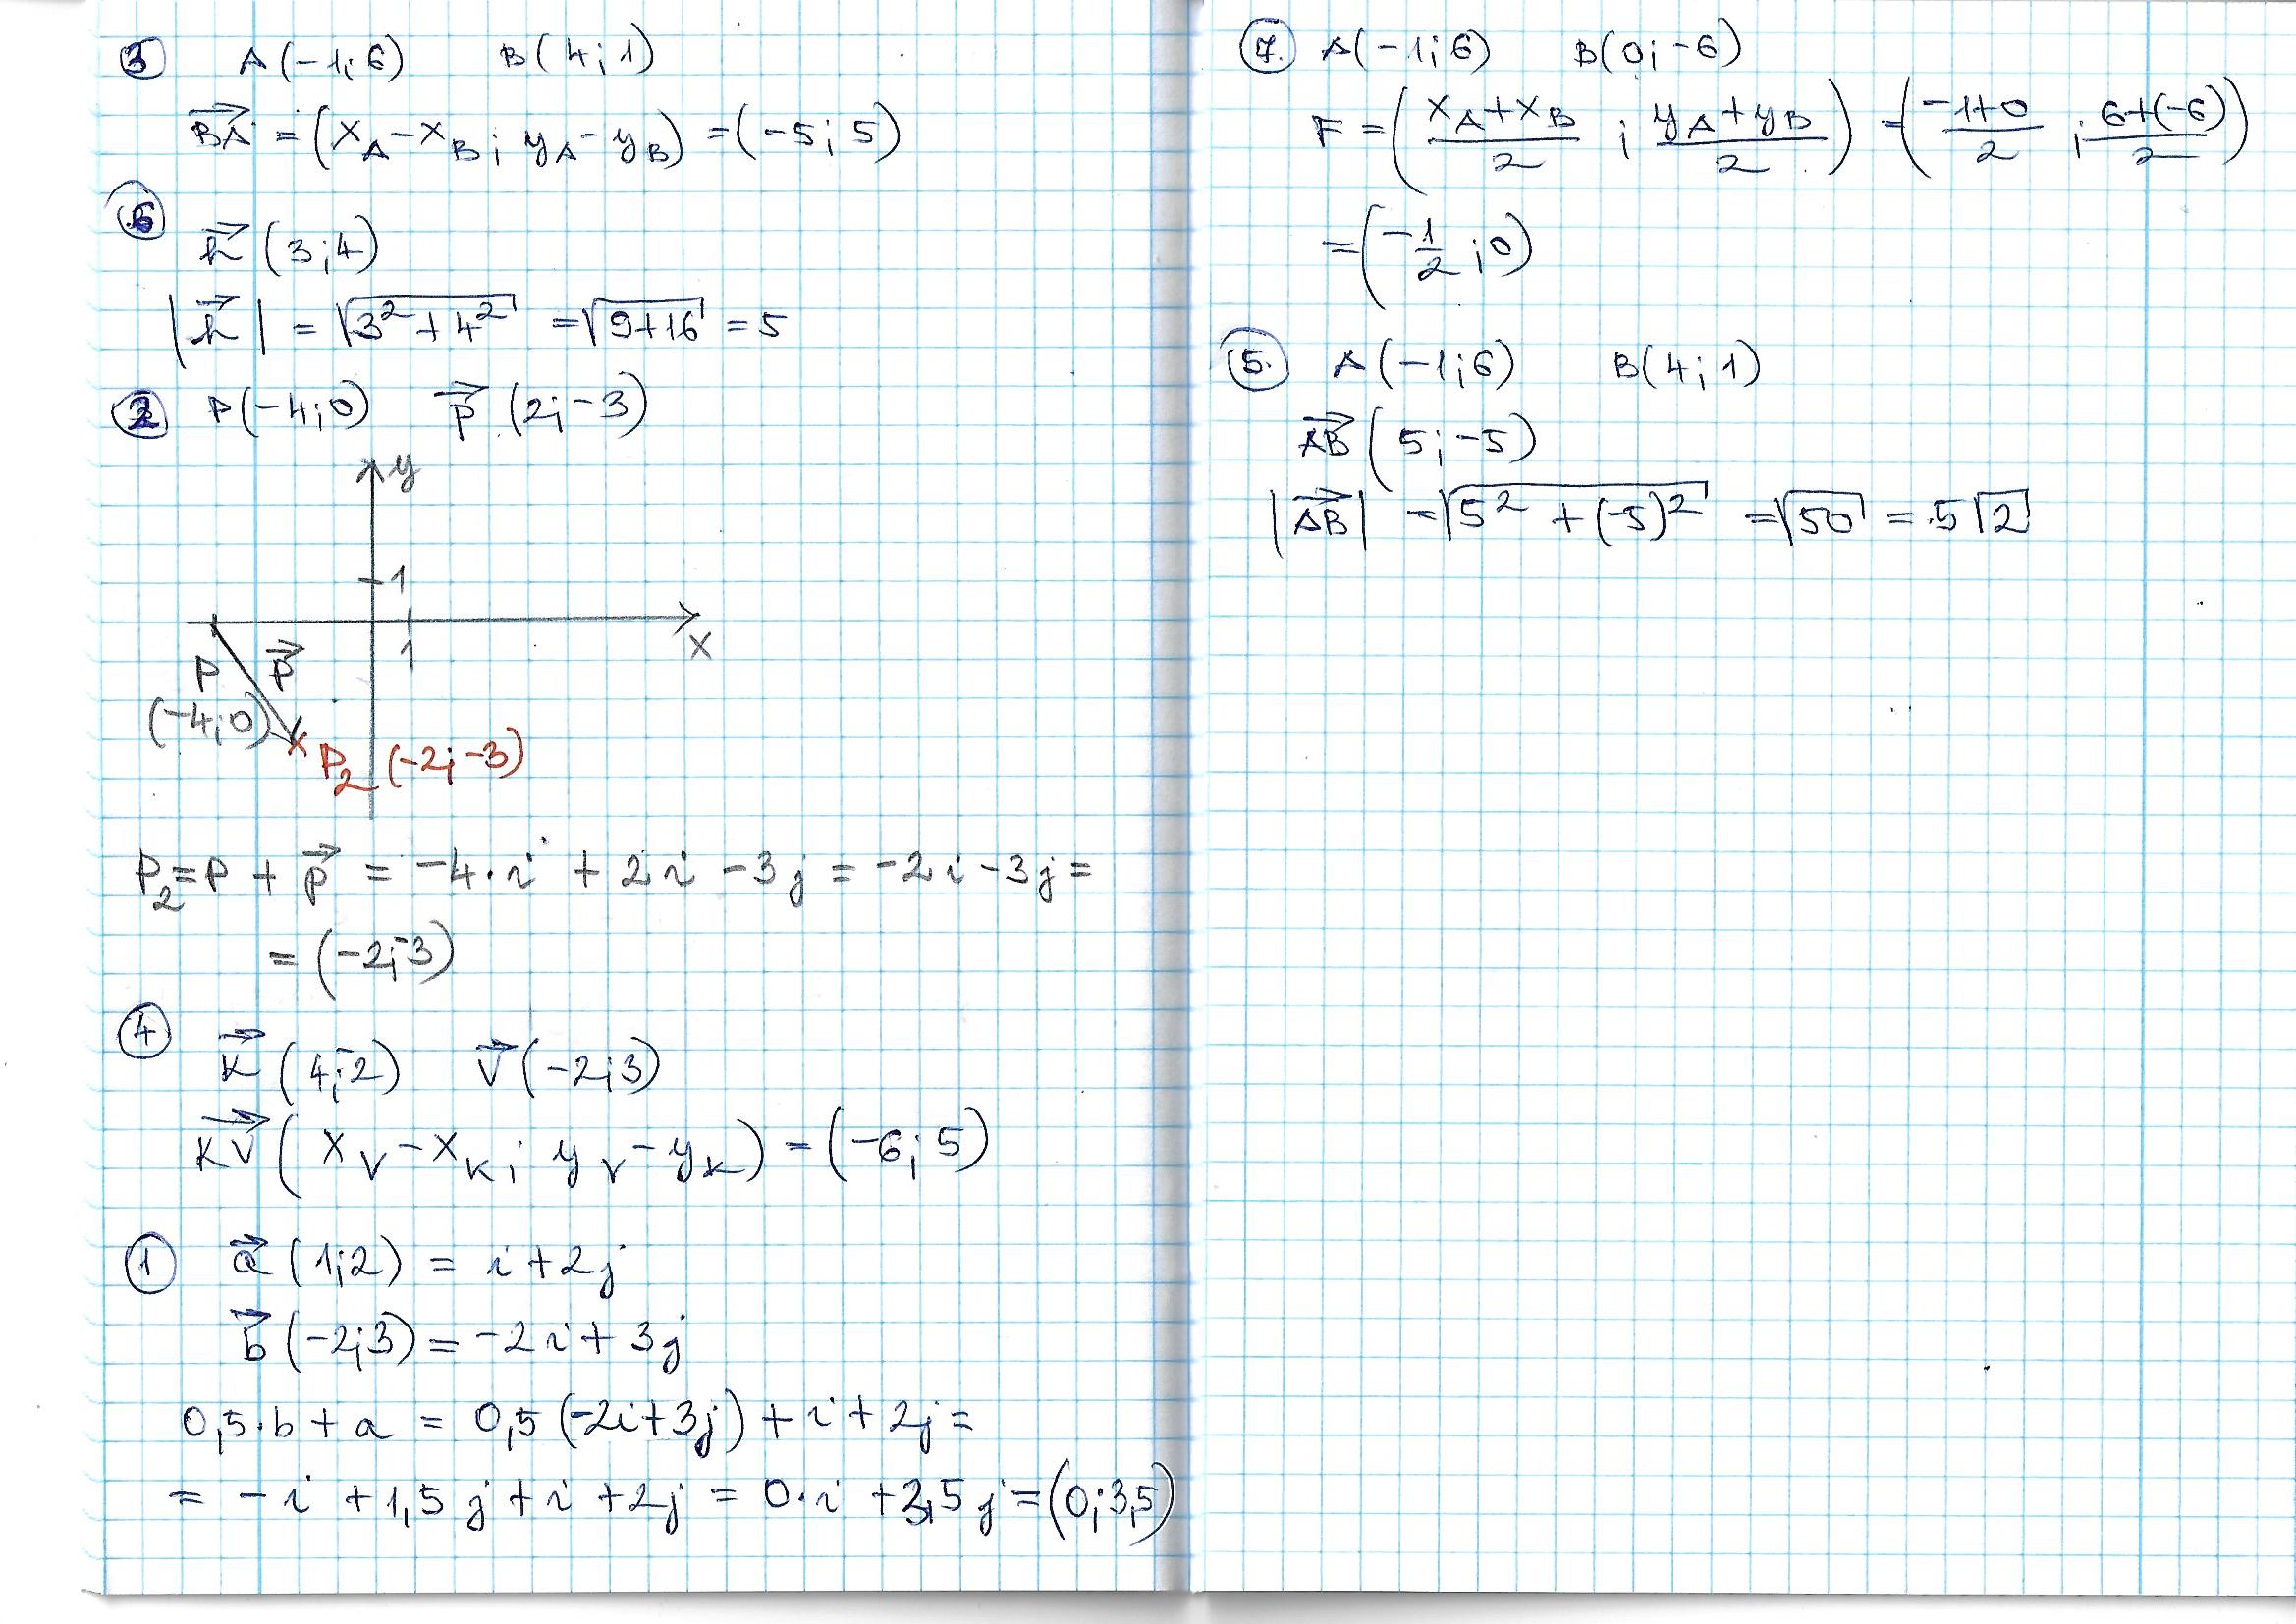 3 A(-1;6) B(4;1)
→BA = (xA-xB; yA-yB) = (-5;5)
6
→h (3;4)
|→h| = √(3²+4²) = √(9+16) = 5
2 P(-4;0) →p (2;-3)
y
1
1 x
P →p
(-4;0)
P2 (-2;-3)
P2=P + →p = -4·i + 2i -3j = -2i-3j=
= (-2;-3)
4
→K (4;-2) →V (-2;3)
→KV (xV-xK; yV-yK) = (-6;5)
1 →a (1;2) = i+2j
→b (-2;3) = -2i+3j
0,5·b+a = 0,5(-2i+3j)+i+2j=
= -i +1,5j+i+2j = 0·i +3,5j=(0;3,5)
7. A(-1;6) B(0;-6)
F = ((xA+xB)/2 ; (yA+yB)/2) = ((-1+0)/2 ; (6+(-6))/2)
=(-1/2 ;0)
5. A(-1;6) B(4;1)
→AB (5;-5)
|→AB| = √(5²+(-5)²) = √50 = 5√2